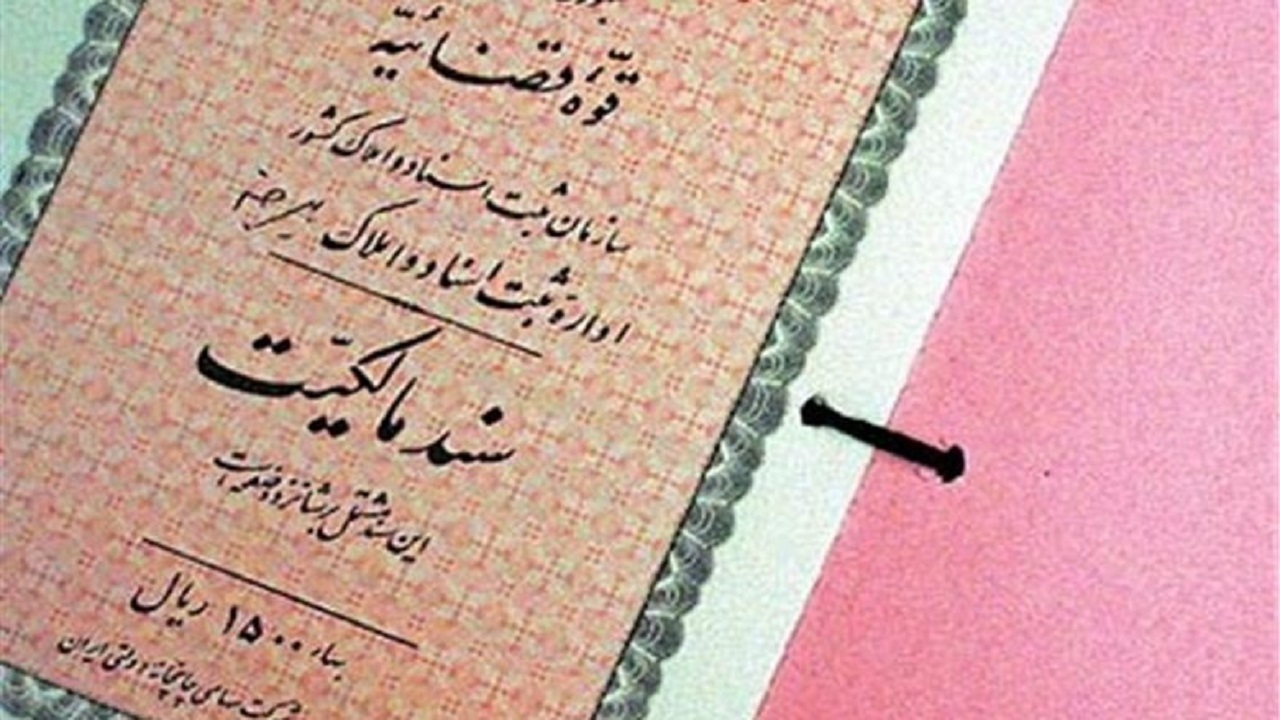 قوّۀ قضائیّه
سازمان ثبت اسناد و املاک کشور
ادارۀ ثبت اسناد و املاک بیرجند
سند مالکیّت
این سند مشتمل بر شانزده صفحه است
بهاء ۱۵۰۰ ریال
شرکت سهامی چاپخانۀ دولتی ایران